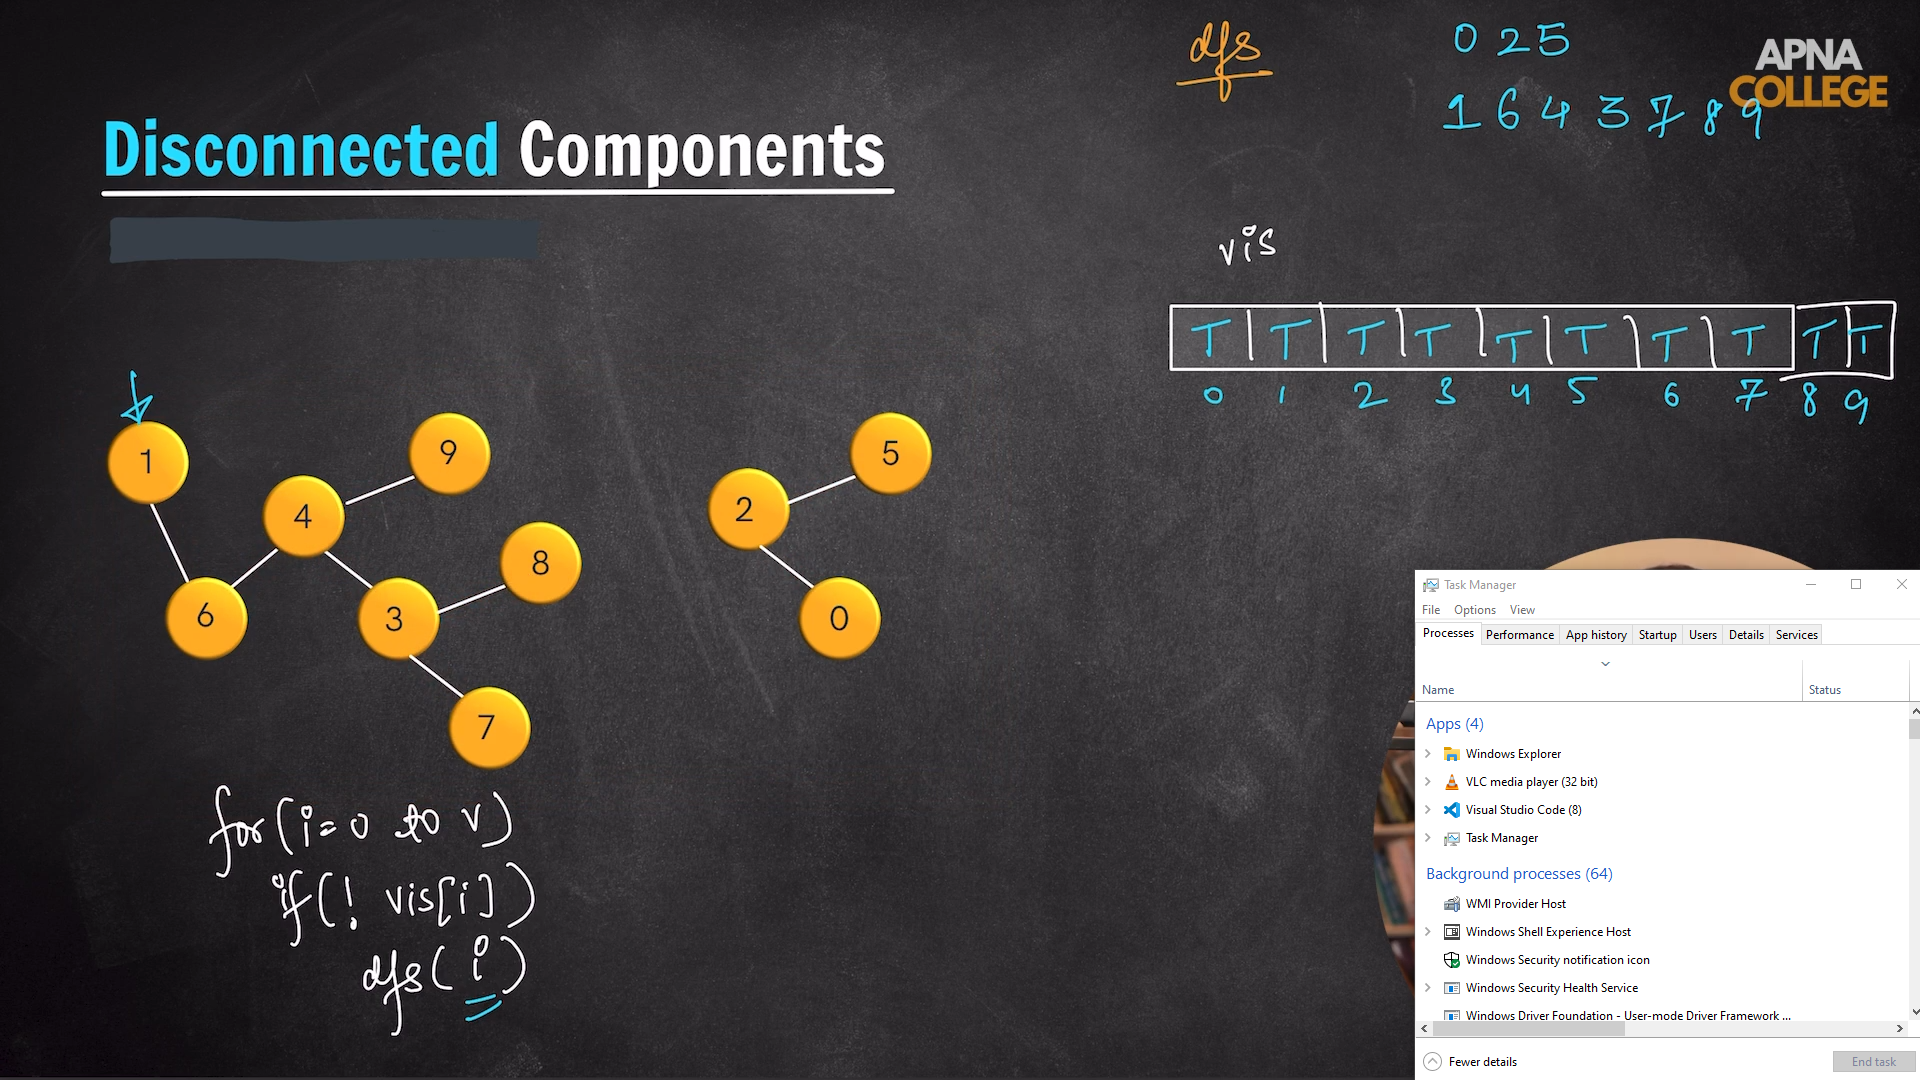 dfs
0 2 5
1 6 4 3 7 8 9
APNA
COLLEGE
Disconnected Components
vis
T T T T T T T T T T
0 1 2 3 4 5 6 7 8 9
1
4
9
6
3
8
7
2
5
0
for(i=0 to V)
if(! vis[i])
dfs(i)
Task Manager
File Options View
Processes Performance App history Startup Users Details Services
Name Status
Apps (4)
Windows Explorer
VLC media player (32 bit)
Visual Studio Code (8)
Task Manager
Background processes (64)
WMI Provider Host
Windows Shell Experience Host
Windows Security notification icon
Windows Security Health Service
Windows Driver Foundation - User-mode Driver Framework ...
Fewer details
End task